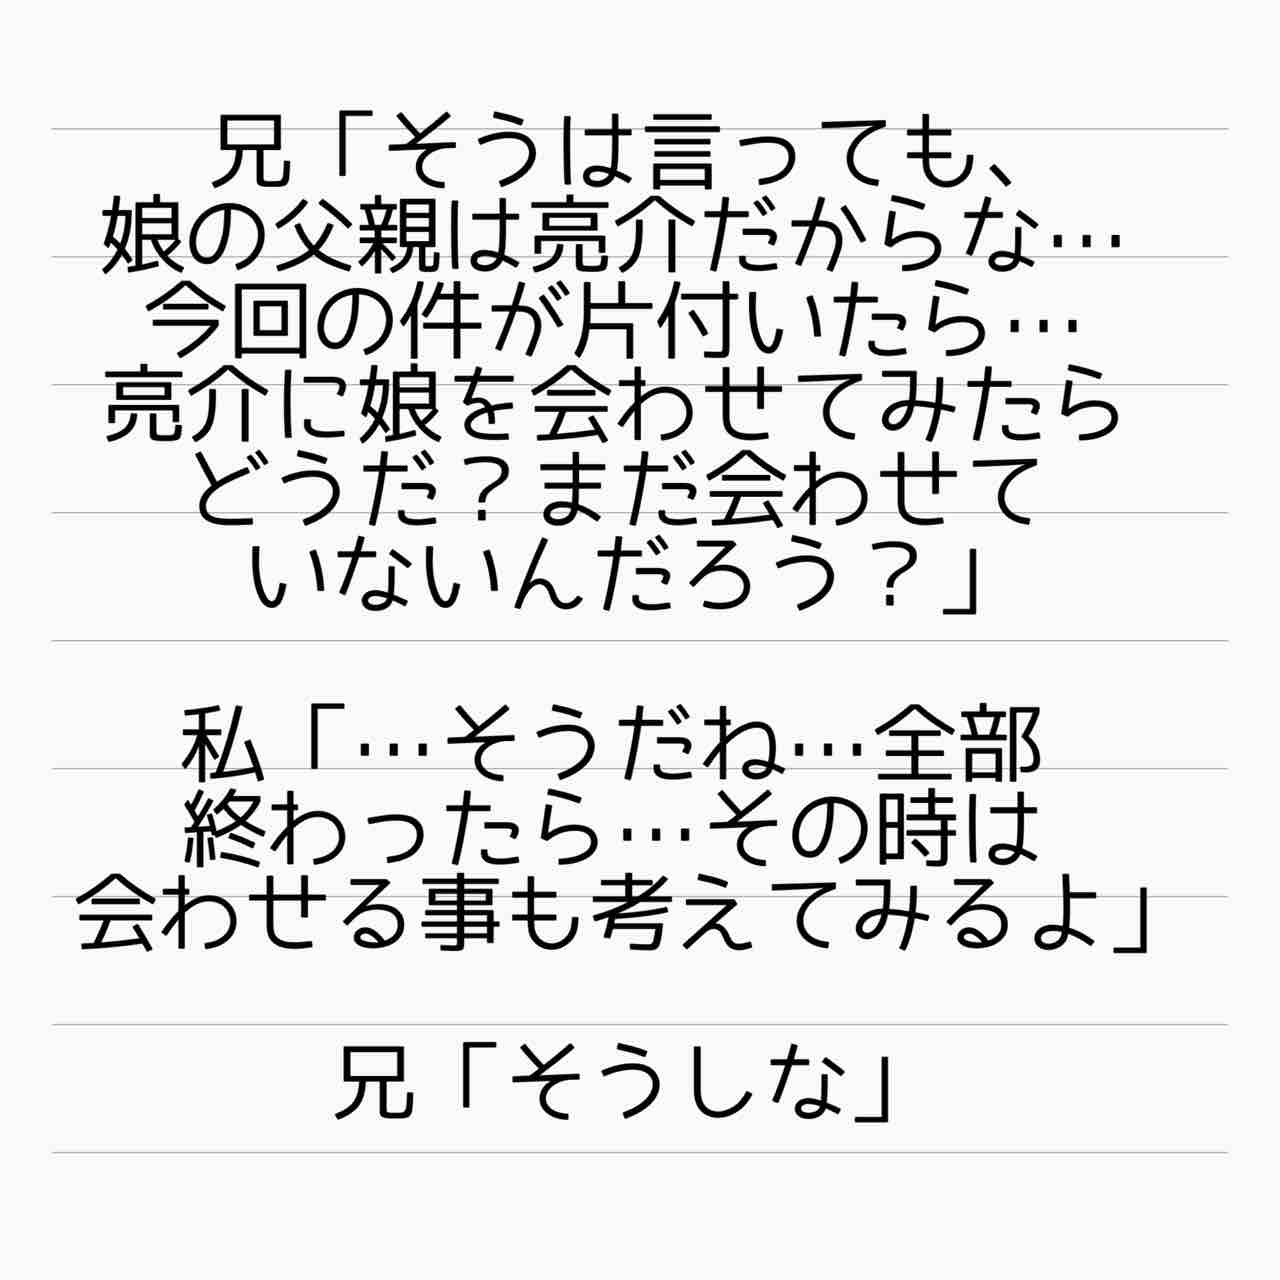 兄「そうは言っても、
娘の父親は亮介だからな…
今回の件が片付いたら…
亮介に娘を会わせてみたら
どうだ？まだ会わせて
いないんだろう？」
私「…そうだね…全部
終わったら…その時は
会わせる事も考えてみるよ」
兄「そうしな」